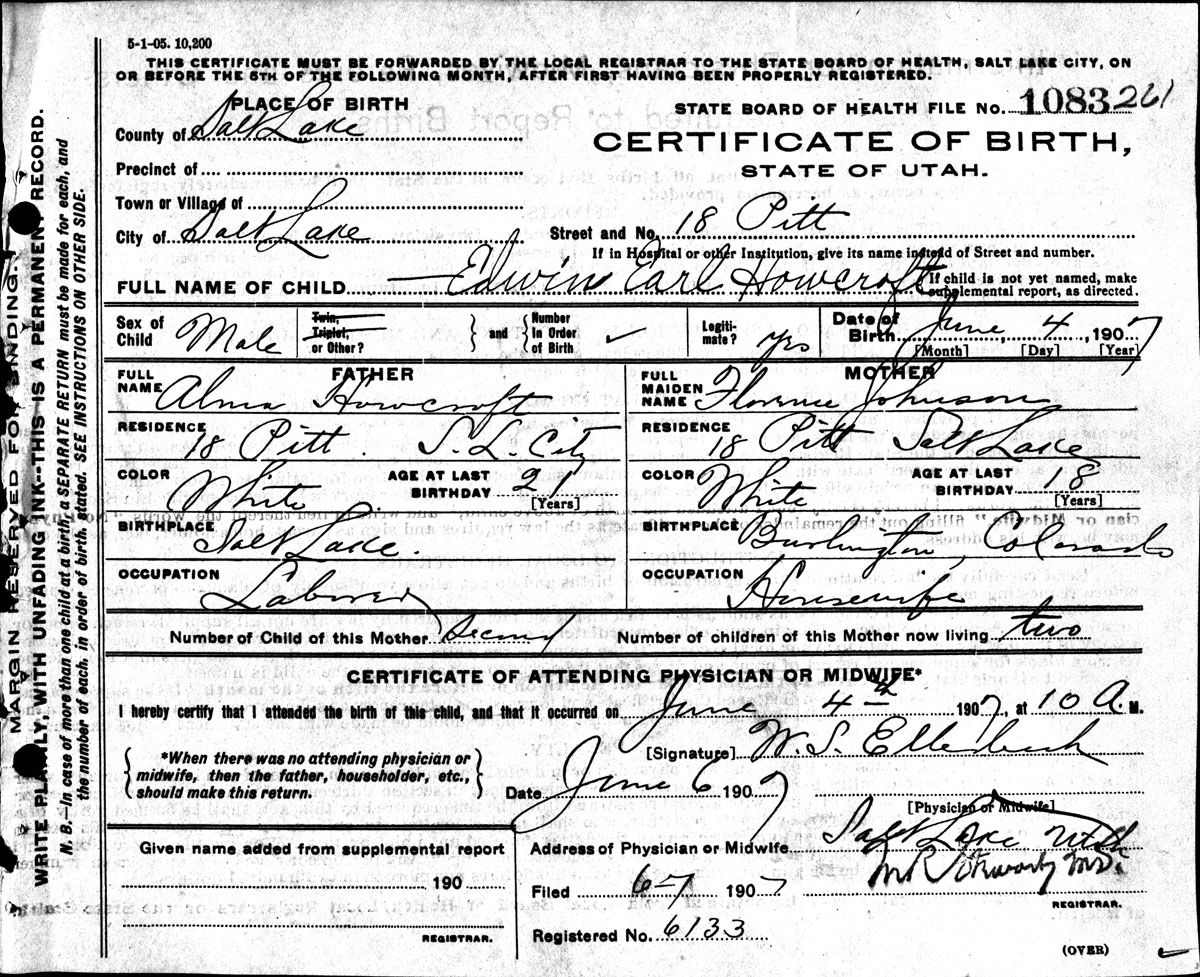 5-1-05. 10,200
THIS CERTIFICATE MUST BE FORWARDED BY THE LOCAL REGISTRAR TO THE STATE BOARD OF HEALTH, SALT LAKE CITY, ON
OR BEFORE THE 5TH OF THE FOLLOWING MONTH, AFTER FIRST HAVING BEEN PROPERLY REGISTERED.
PLACE OF BIRTH
STATE BOARD OF HEALTH FILE No. 1083 261
County of Salt Lake
CERTIFICATE OF BIRTH,
STATE OF UTAH.
Precinct of
Town or Village of
City of Salt Lake
Street and No. 18 Pitt
If in Hospital or other Institution, give its name instead of Street and number.
FULL NAME OF CHILD Edwin Earl Howcroft
If child is not yet named, make
supplemental report, as directed.
Sex of Child Male
Twin, Triplet, or Other? and Number In Order of Birth ✓
Legiti-mate? yes
Date of Birth June 4, 1907
[Month] [Day] [Year]
FATHER
FULL NAME Alma Howcroft
RESIDENCE 18 Pitt. S. L. City
COLOR White AGE AT LAST BIRTHDAY 21 [Years]
BIRTHPLACE Salt Lake.
OCCUPATION Laborer
MOTHER
FULL MAIDEN NAME Florence Johnson
RESIDENCE 18 Pitt Salt Lake
COLOR White AGE AT LAST BIRTHDAY 18 [Years]
BIRTHPLACE Burlington, Colorado
OCCUPATION Housewife
Number of Child of this Mother Second Number of children of this Mother now living two
CERTIFICATE OF ATTENDING PHYSICIAN OR MIDWIFE*
I hereby certify that I attended the birth of this child, and that it occurred on June 4th 1907, at 10 A. M.
*When there was no attending physician or
midwife, then the father, householder, etc.,
should make this return.
[Signature] W. S. Ellerbeck
Date June 6 1907
[Physician or Midwife]
Given name added from supplemental report
190
REGISTRAR.
Address of Physician or Midwife Salt Lake Utah
Filed 6-7 1907
REGISTRAR.
Registered No. 6133
(OVER)
MARGIN RESERVED FOR BINDING.
WRITE PLAINLY, WITH UNFADING INK--THIS IS A PERMANENT RECORD.
N. B.—In case of more than one child at a birth, a SEPARATE RETURN must be made for each, and
the number of each, in order of birth, stated. SEE INSTRUCTIONS ON OTHER SIDE.